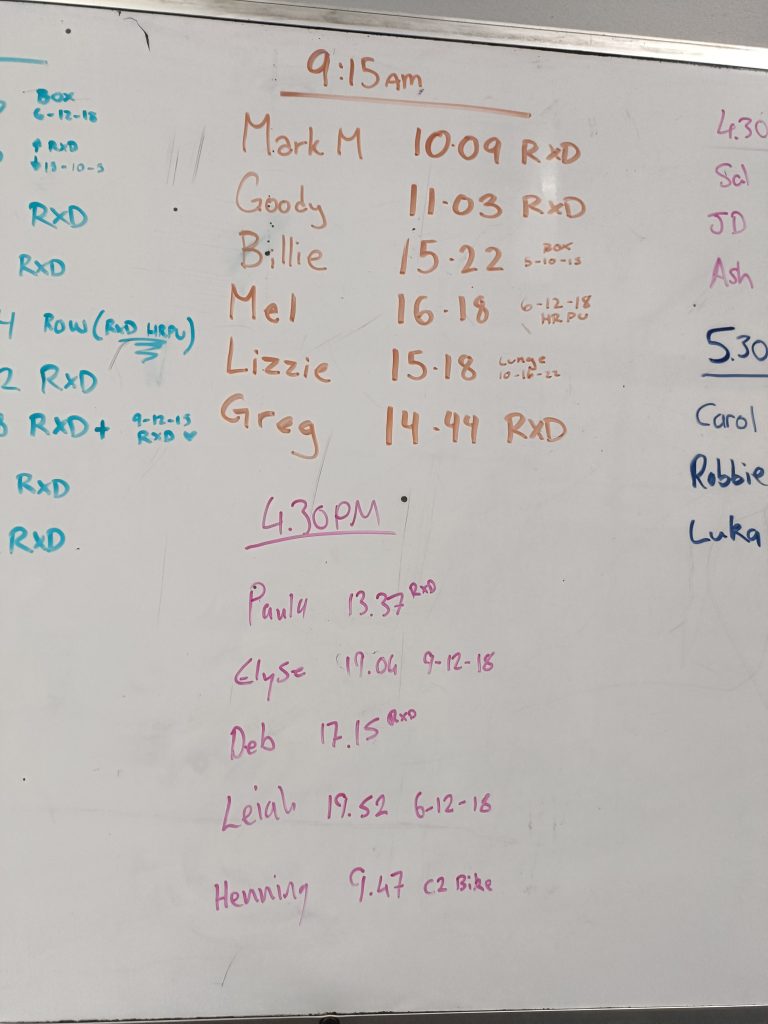 BOX
6-12-18
↑ RXD
↓ 13-10-
RXD
RXD
4 ROW (RXD HRPU)
2 RXD
RXD+ 9-12-15
RXD ♥
RXD
RXD
9:15AM
Mark M 10.09 RXD
Goody 11.03 RXD
Billie 15.22 BOX
-10-15
Mel 16.18 6-12-18
HRPU
Lizzie 15.18 Lunge
10-16-22
Greg 14.44 RXD
4.30PM
Paula 13.37 RXD
Elyse 19.04 9-12-18
Deb 17.15 RXD
Leiah 19.52 6-12-18
Henning 9.47 C2 Bike
4.30
Sal
JD
Ash
5.30
Carol
Robbie
Luka